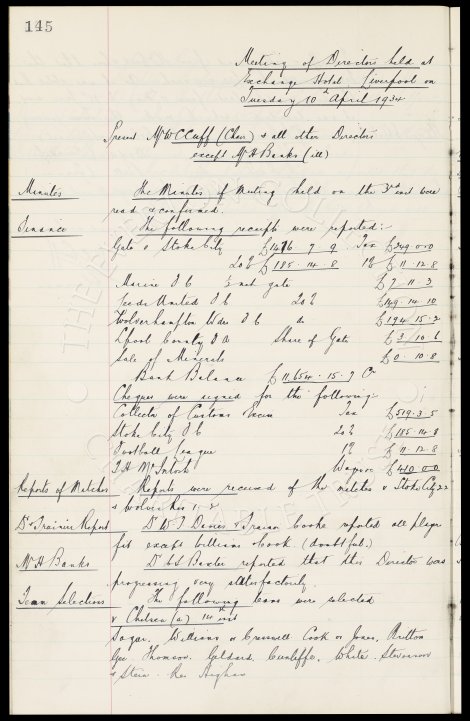 145
Meeting of Directors held at
Exchange Hotel Liverpool on
Tuesday 10th April 1934
Present Mr W C Cuff (Chair) & all other Directors
except Mr H Banks (ill)
Minutes The Minutes of Meeting held on the 3rd inst were
read & confirmed.
Finance The following receipts were reported:-
Gate v Stoke City £1416. 7. 9 Tax £349 0.0
20% £185. 14. 8 1% £11. 12. 8
Marine F C nett gate £7. 11. 3
Leeds United F C 20% £149. 14. 10
Wolverhampton Wdrs F C do £194. 15. 2
Lpool County F A Share of Gate £3. 10. 6
Sale of Minerals £0. 10. 8
Bank Balance £11,654. 15. 7 Cr
Cheques were signed for the following
Collector of Customs Excise Tax £519. 3. 5
Stoke City F C 20% £185. 14. 8
Football League 1% £11. 12. 8
T H McIntosh Wages £410 0 0
Reports of Matches Reports were received of the matches v Stoke City 2.2
& Wolves Res 1. 2
Dr & Trainers Report Dr W J Davies & Trainer Cooke reported all players
fit except Williams & Cook (doubtful.)
Mr H Banks Dr C S Baxter reported that this Director was
progressing very satisfactorily.
Team Selections The following teams were selected
v Chelsea (a) 14th inst
Sagar. Williams or Cresswell Cook or Jones, Britton
Gee Thomson. Geldard. Cunliffe, White. Stevenson
& Stein. Res Higham